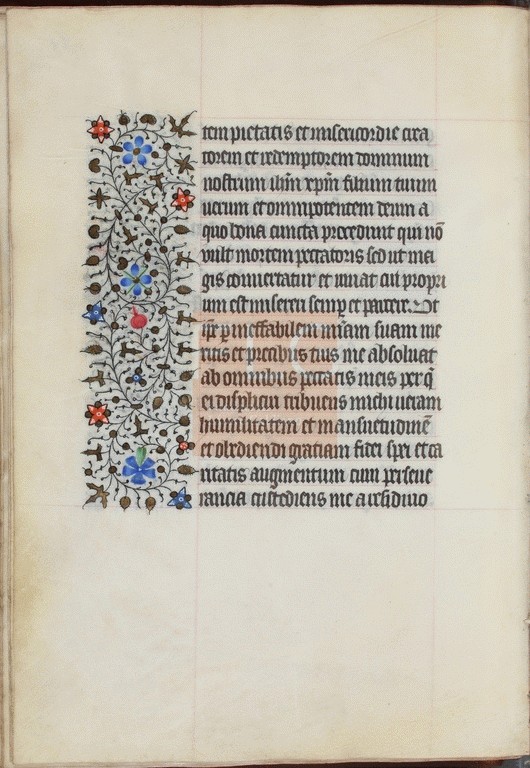 tem pietatis et misericordie crea
torem et redemptorem dominum
nostrum ihm̄ xp̄m filium tuum
uerum et omnipotentem deum a
quo bona cuncta procedunt qui nō
vult mortem peccatoris sed ut ma
gis conuertatur et uiuat cui propri
um est misereri semp̲ et parcere. Ut
ip̄e p̲ ineffabilem mīam suam me
ritis et precibus tuis me absoluat
ab omnibus peccatis meis per q̄
ei displicui tribuens michi ueram
humilitatem et mansuetudinē
et obediendi gratiam fidei spei et ca
ritatis augmentum cum perseue
rancia custodiens me a